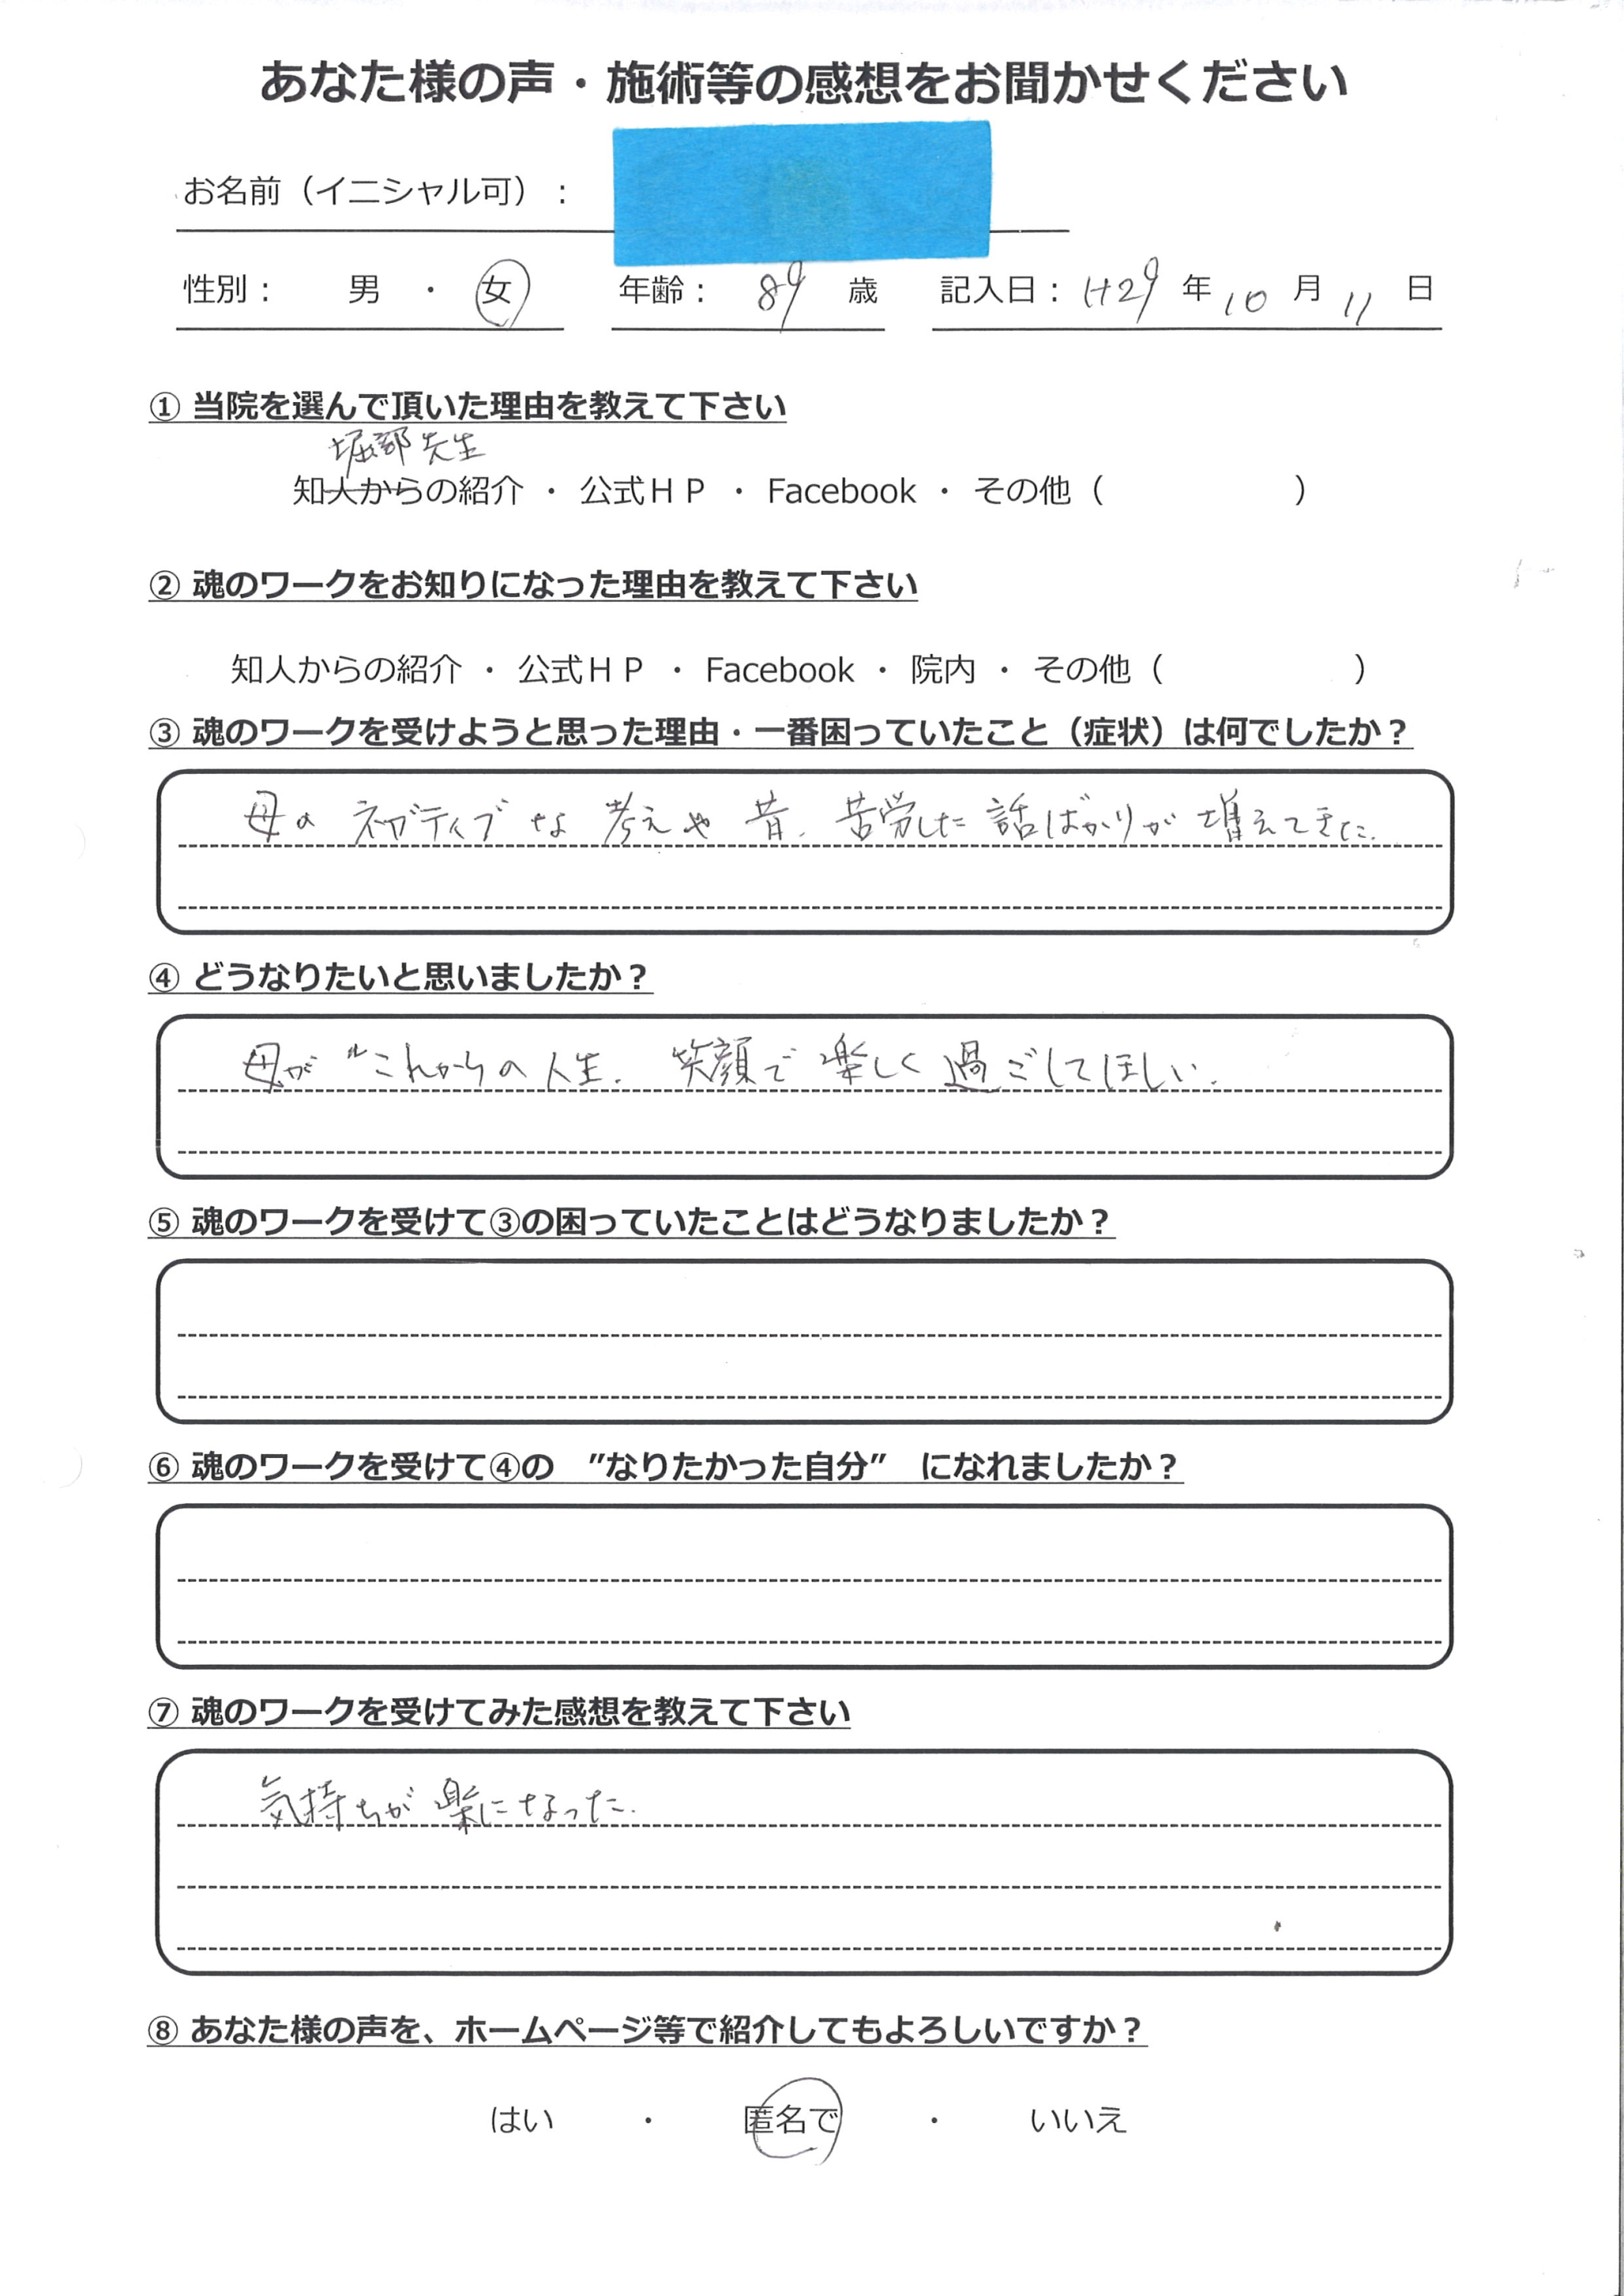 あなた様の声・施術等の感想をお聞かせください
お名前（イニシャル可）：
性別： 男 ・ 女 年齢： 89 歳 記入日：H29 年 10 月 11 日
① 当院を選んで頂いた理由を教えて下さい
堀部先生
知人からの紹介 ・ 公式ＨＰ ・ Facebook ・ その他（ ）
② 魂のワークをお知りになった理由を教えて下さい
知人からの紹介 ・ 公式ＨＰ ・ Facebook ・ 院内 ・ その他（ ）
③ 魂のワークを受けようと思った理由・一番困っていたこと（症状）は何でしたか？
母のネガティブな考えや昔、苦労した話ばかりが増えてきた。
④ どうなりたいと思いましたか？
母が〝これからの人生、笑顔で楽しく過ごしてほしい。
⑤ 魂のワークを受けて③の困っていたことはどうなりましたか？
⑥ 魂のワークを受けて④の ”なりたかった自分” になれましたか？
⑦ 魂のワークを受けてみた感想を教えて下さい
気持ちが楽になった。
⑧ あなた様の声を、ホームページ等で紹介してもよろしいですか？
はい ・ 匿名で ・ いいえ